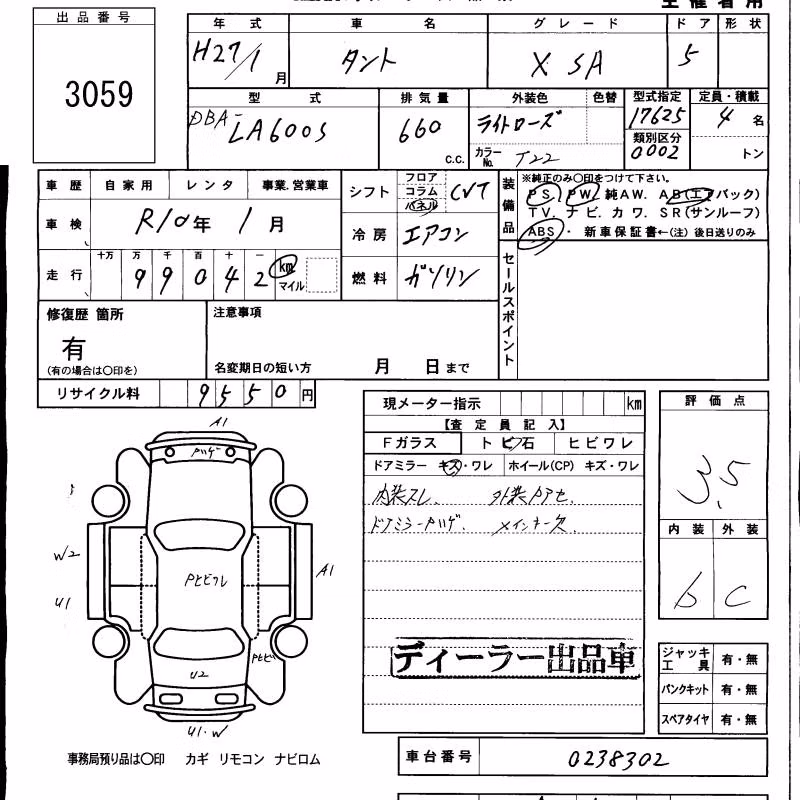 出品番号
3059
年式 車名 グレード ドア 形状
H27/1月 タント X SA 5
型式 排気量 外装色 色替 型式指定 定員・積載
DBA-LA600S 660 c.c. ライトローズ 17625 4名
カラーNo. T22 類別区分 0002 トン
車歴 自家用 レンタ 事業.営業車
シフト フロア コラム パネル CVT
装備品 ※純正のみ〇印をつけて下さい。
PS. PW. 純AW. AB(エアバック)
TV. ナビ. カワ. SR(サンルーフ)
ABS・ 新車保証書←(注) 後日送りのみ
車検 R10年1月
冷房 エアコン
走行 十万 万 千 百 十 一
99042 km マイル
燃料 ガソリン
セールスポイント
修復歴 箇所
有
(有の場合は〇印を)
注意事項
名変期日の短い方 月 日まで
リサイクル料 9550円
現メーター指示 km
【査定員記入】
Fガラス トビ石 ヒビワレ
ドアミラー キズ・ワレ ホイール(CP) キズ・ワレ
内装スレ. 外装Pアセ.
ドアミラーPハゲ. メインキー欠.
ディーラー出品車
評価点
3.5
内装 外装
b C
ジャッキ工具 有・無
パンクキット 有・無
スペアタイヤ 有・無
A1
Pハゲ
W2
U1
Pヒビワレ
A1
Pヒビ
U2
U1・W
事務局預り品は〇印 カギ リモコン ナビロム
車台番号 0238302